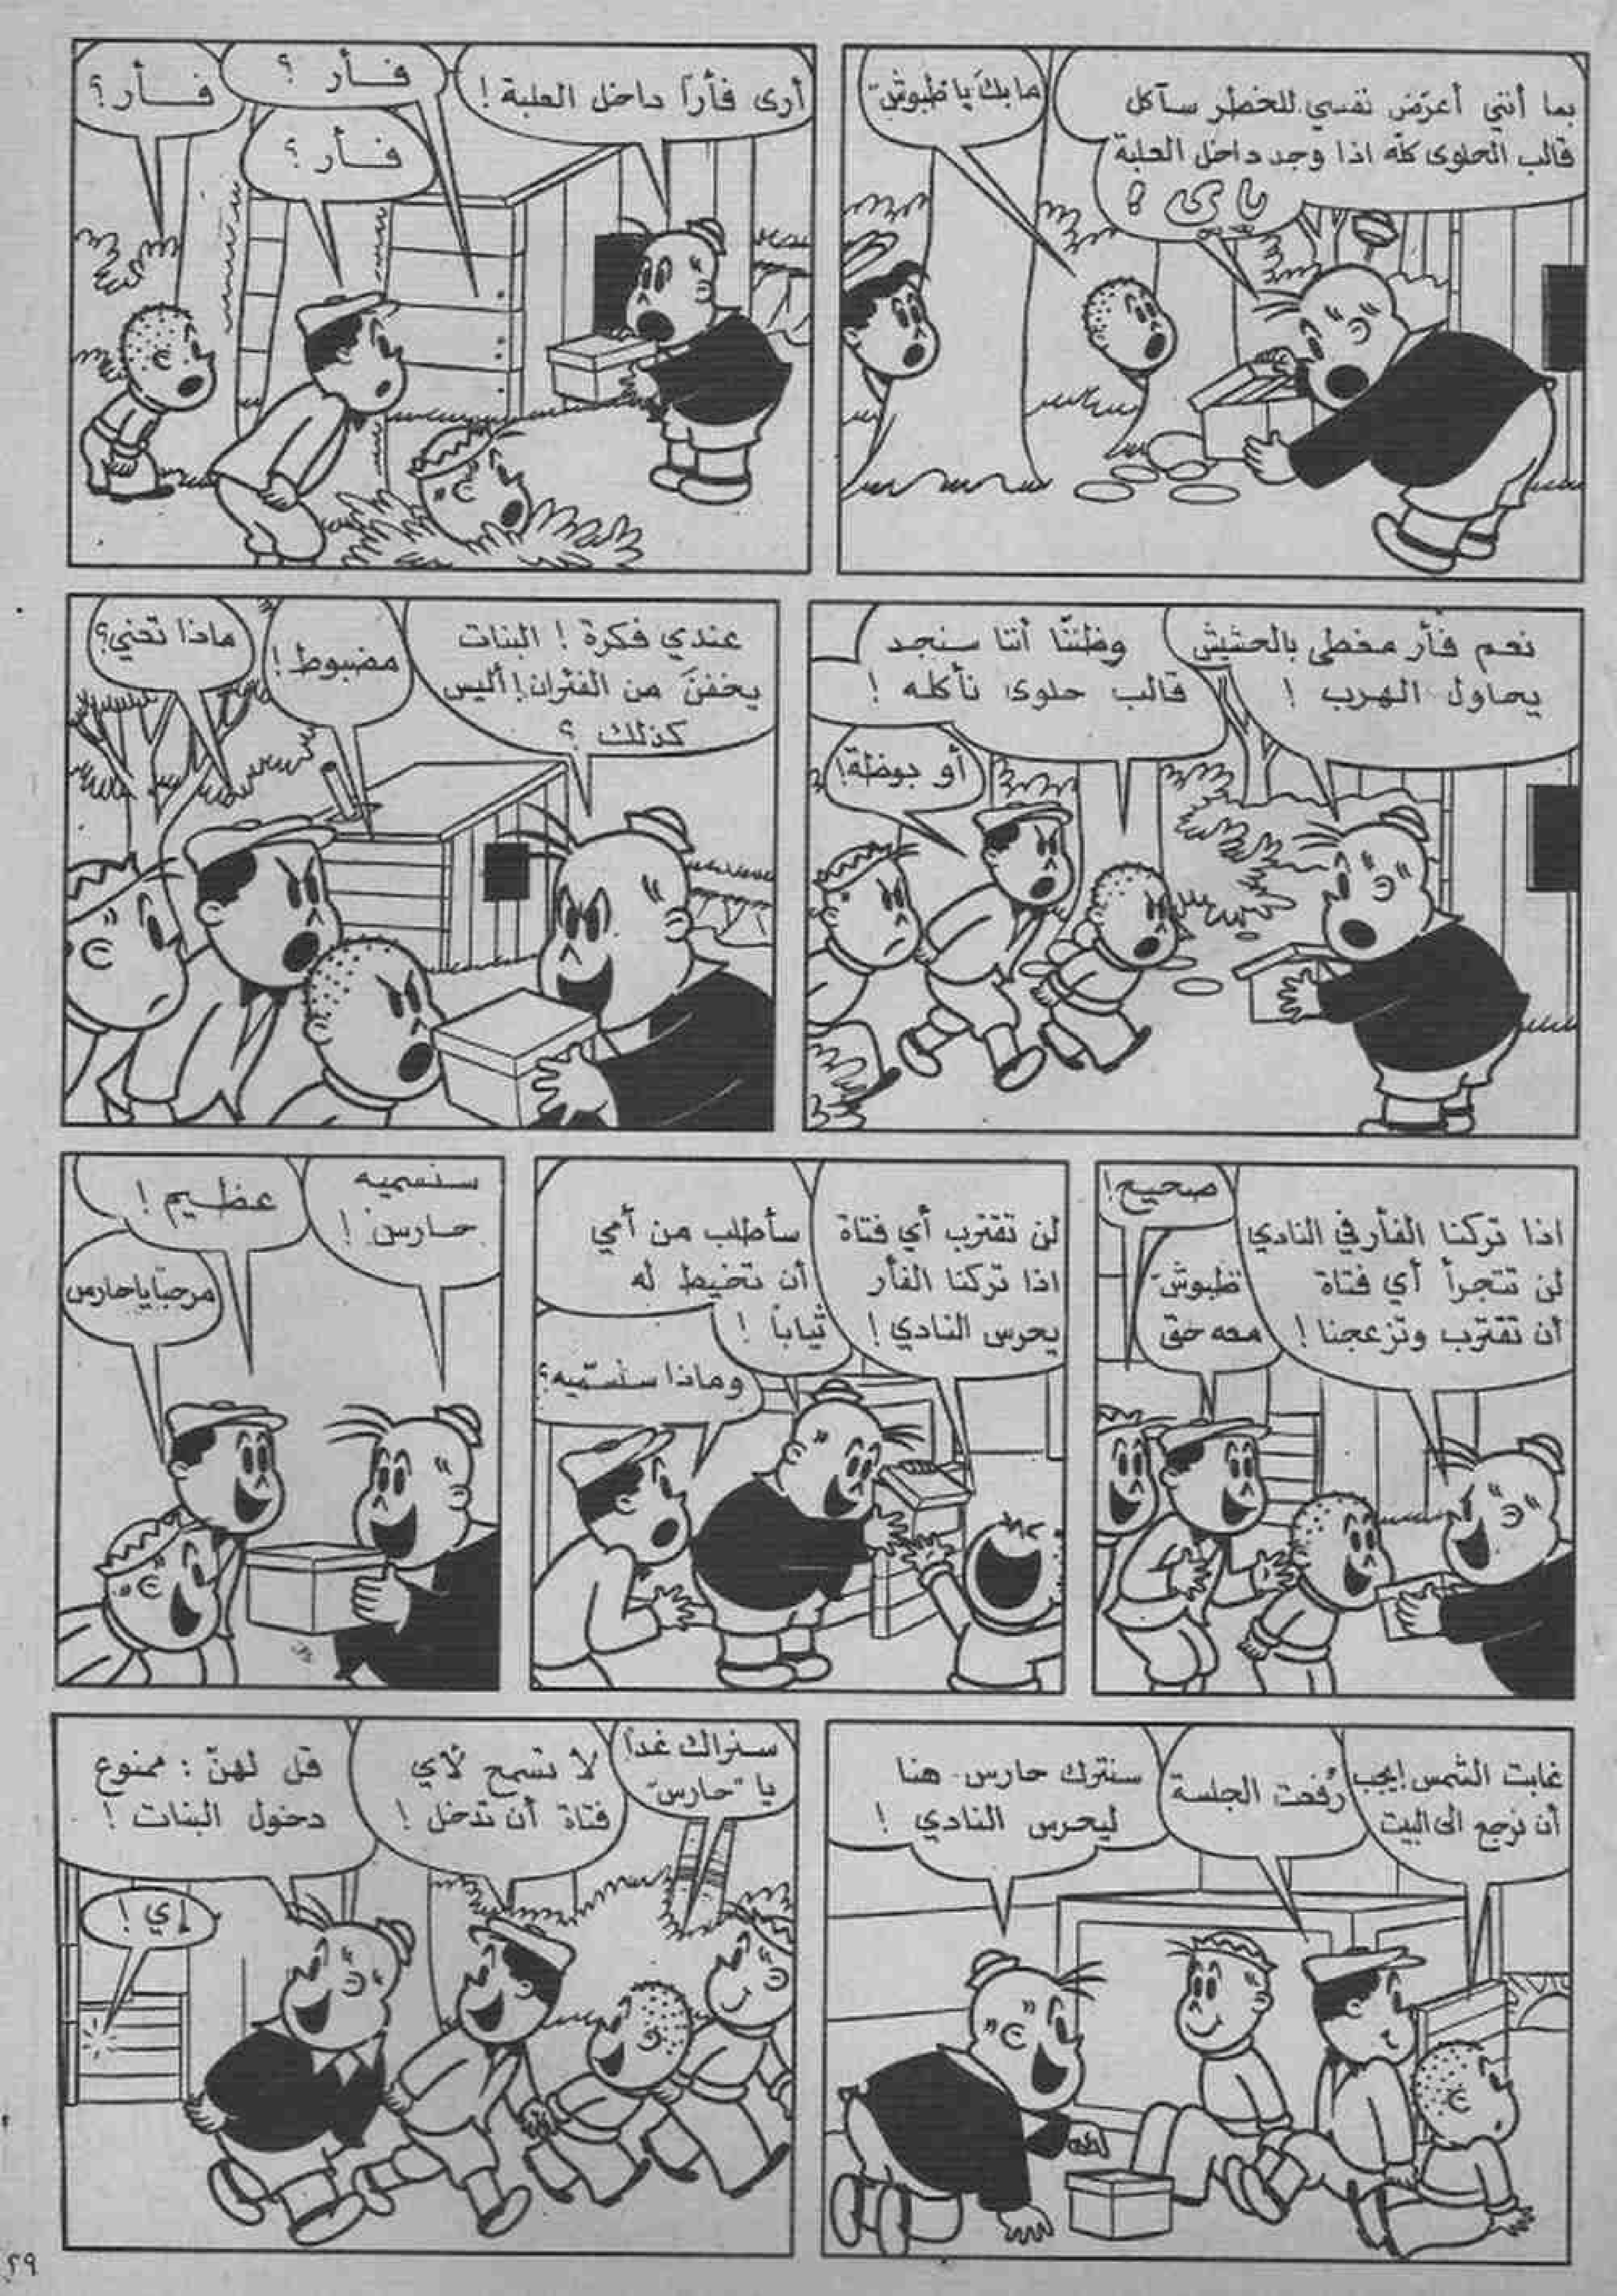 بما أنني أعرّض نفسي للخطر سآكل
قالب الحلوى كلّه اذا وجد داخل العلبة
ياي !
ما بك يا طبوش
أرى فأراً داخل العلبة !
فـأر ؟
فـأر ؟
فـأر ؟
نعم فأر مغطى بالحشيش
يحاول الهرب !
وظننّا أننا سنجد
قالب حلوى نأكله !
أو بوظة !
عندي فكرة ! البنات
يخفنَ من الفئران ! أليس
كذلك ؟
مضبوط !
ماذا تعني ؟
اذا تركنا الفأر في النادي
لن تتجرأ أي فتاة
أن تقترب وتزعجنا !
صحيح !
طبوش
معه حق
لن تقترب أي فتاة
اذا تركنا الفأر
يحرس النادي !
سأطلب من أمي
أن تخيط له
ثياباً !
وماذا سنسمّيه ؟
سنسميه
حارس !
عظيم !
مرحباً يا حارس
غابت الشمس ! يجب
أن نرجع الى البيت
رُفعت الجلسة
سنترك حارس هنا
ليحرس النادي !
سنراك غداً
يا "حارس"
لا تسمح لأي
فتاة أن تدخل !
قل لهنّ : ممنوع
دخول البنات !
إي !
٢٩